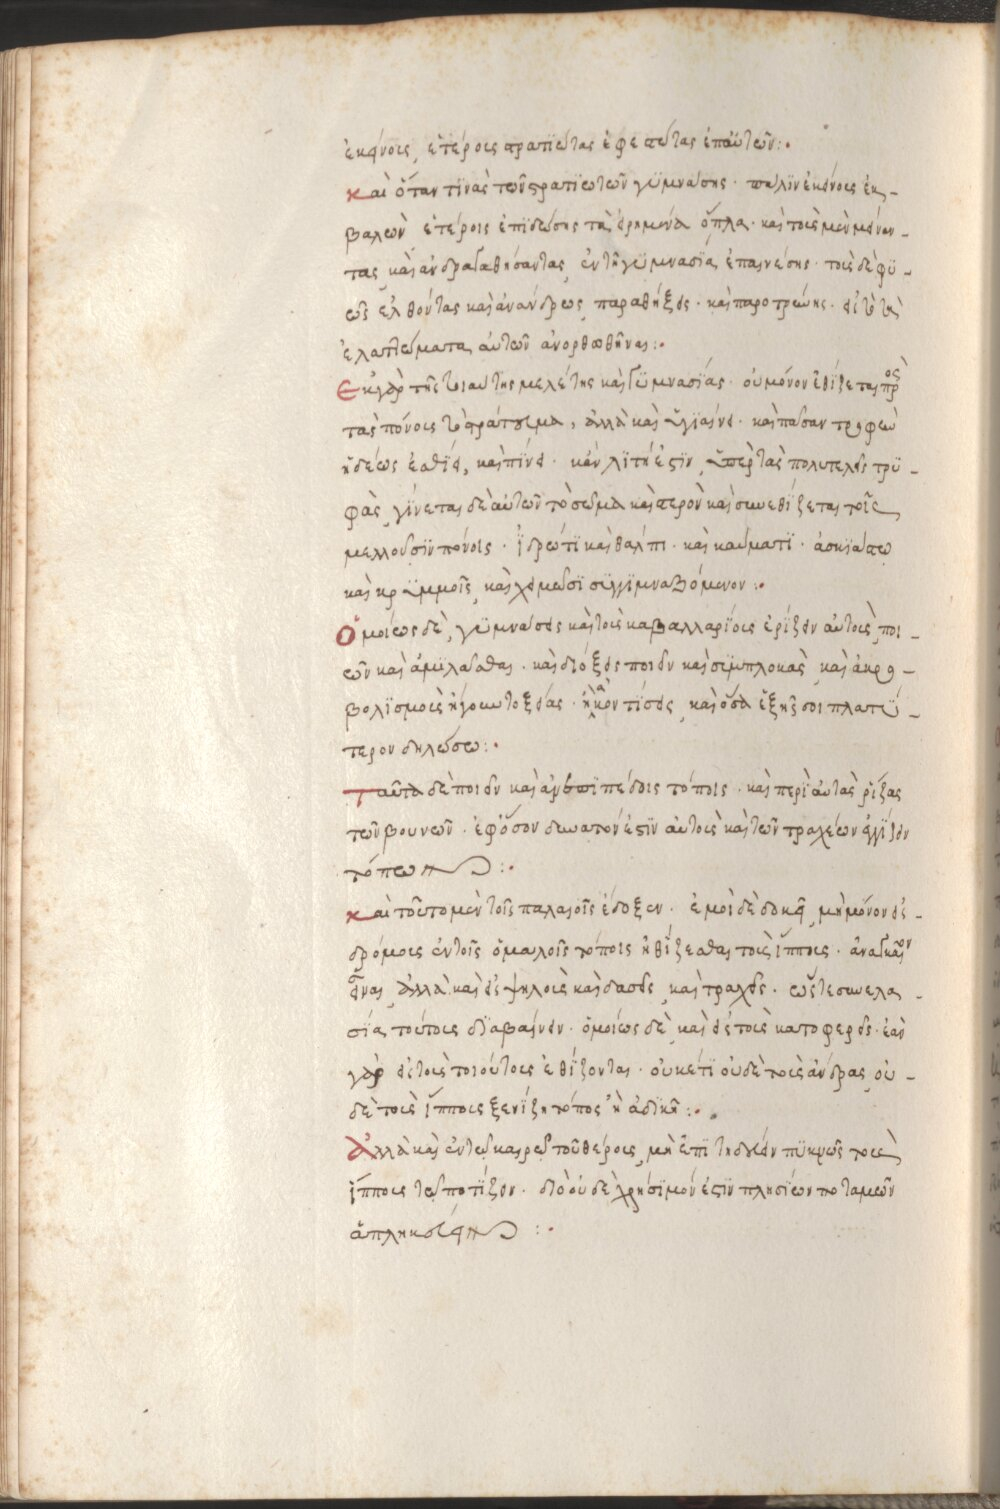 ἐκείνοις, ἑτέροις στρατιώτας ἐφεστῶτας ἐπ αὐτῶν:·
και ὅταν τϊνὰς τῶν στρατϊωτῶν γϋμνάσης · πάλϊν ἐκείνοις ἐκ-
βαλὼν ἑτέροις ἐπϊδώσης τὰ εἰρημένα ὅπλα · καὶ τοὺς μὲν μείναν-
τας καὶ ἀνδραγαθήσαντας ἐν τῆ γϋμνασία ἐπαινέσης · τοὺς δὲ φϋ-
ῶς ἐλθόντας καὶ ἀνάνδρως παραθήξεις · καὶ παροτρύνης · εἰς τὸ τὰ
ἐλαττώματα αὐτῶν ἀνορθωθῆναι:·
Εκ γὰρ τῆς τοιαύτης μελέτης καὶ γϋμνασίας · οὐ μόνον ἐθίζεται πρὸς
τὰς πόνους τὸ στράτευμα, ἀλλὰ καὶ ὑγιαίνει · καὶ πᾶσαν τροφὴν
ἡδέως ἐσθίει, καὶ πίνει · κἀν λϊτὴ ἐστϊν, ὑπὲρ τὰς πολυτελεῖς τρϋ-
φὰς, γίνεται δὲ αὐτῶν τὸ σῶμα καὶ στερὸν καὶ συνεθίζεται τοῖς
μελλουσϊν πόνοις · ἱδρώτϊ καὶ θάλπι · καὶ καύματϊ · ἀσκιάστω
καὶ κρϋμμοῖς, καὶ χειμῶσϊ σϋγγϋμναζόμενον :·
Ὁμοίως δὲ, γϋμνάσεις καὶ τοὺς καβαλλαρίους ἐρίζειν αὐτοὺς, ποι-
ῶν καὶ ἁμιλᾶσθαι · καὶ διόξεις ποιεῖν καὶ σϋμπλοκὰς, καὶ ἀκρο-
βολϊσμοὺς ἤγουν τοξείας · ἢ ἀκοντίσεις, καὶ ὅσα ἑξῆς σοι πλατϋ-
τερον δηλώσω:·
Ταῦτα δὲ ποιεῖν καὶ ἀν ἐπϊπέδοις τόποις · καὶ περὶ αὐτὰς ῥίζας
τῶν βουνῶν · ἐφ ὅσον δυνατὸν ἐστϊν αὐτοὺς καὶ τῶν τραχέων ἐγγίζειν
τόπων :·
και τοῦτο μὲν τοῖς παλαιοῖς ἔδοξεν · ἐμοὶ δὲ δοκεῖ, μὴ μόνον εἰς -
δρόμους ἐν τοῖς ὁμαλοῖς τόποις ἠθίζεσθαι τοὺς ἵππους · ἀναγκαῖον
εἶναι, ἀλλὰ καὶ εἰς ὑψηλοὺς καὶ δασεῖς, καὶ τραχεῖς · ὥστε συνελα-
σία τούτοις δϊαβαίνειν · ὁμοίως δὲ, καὶ εἰς τοὺς κατοφερεῖς · ἐὰν
γὰρ εἰς τοὺς τοιούτους ἐθίζονται · οὐκέτϊ οὐδὲ τοὺς ἄνδρας, οὐ-
δὲ τοὺς ἵππους ξενίζη τόπος ἢ ἀδϊκῆ :·
Ἀλλὰ καὶ ἐν τῶ καιρῶ τοῦ θέρους, μὴ ἐπϊτηδεύειν πϋκνῶς τοὺς
ἵππους τῶ ποτίζειν · διὸ οὐδὲ χρήσϊμόν ἐστϊν πλησίων ποταμῶν
ἀπληκεύειν :·